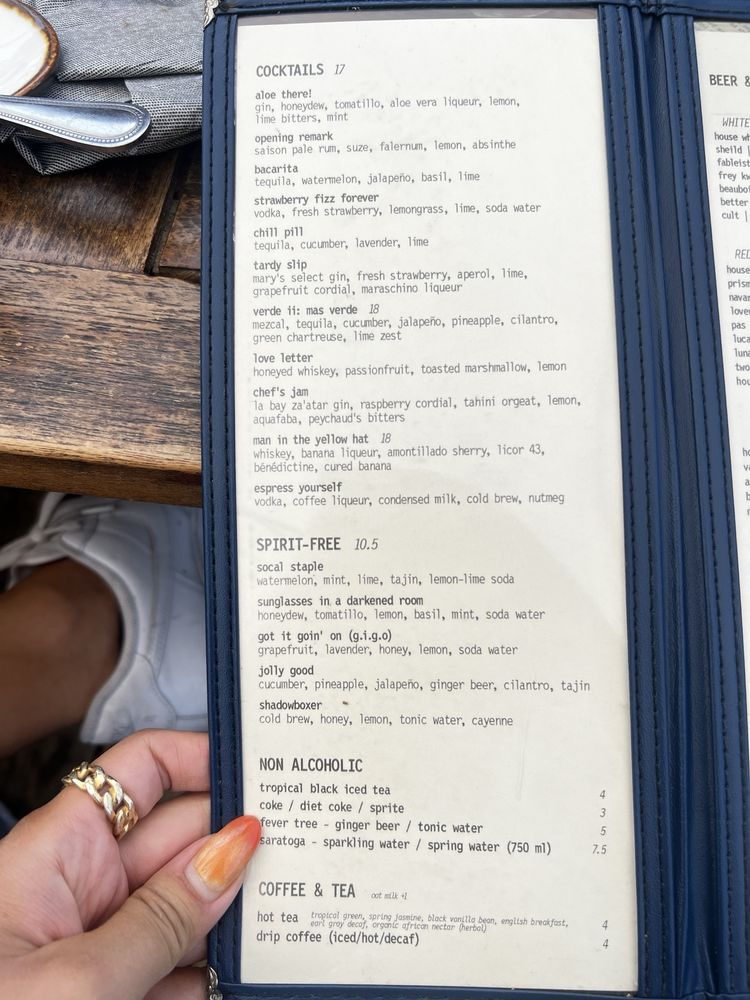 COCKTAILS 17
aloe there!
gin, honeydew, tomatillo, aloe vera liqueur, lemon,
lime bitters, mint
opening remark
saison pale rum, suze, falernum, lemon, absinthe
bacarita
tequila, watermelon, jalapeño, basil, lime
strawberry fizz forever
vodka, fresh strawberry, lemongrass, lime, soda water
chill pill
tequila, cucumber, lavender, lime
tardy slip
mary's select gin, fresh strawberry, aperol, lime,
grapefruit cordial, maraschino liqueur
verde ii: mas verde 18
mezcal, tequila, cucumber, jalapeño, pineapple, cilantro,
green chartreuse, lime zest
love letter
honeyed whiskey, passionfruit, toasted marshmallow, lemon
chef's jam
la bay za'atar gin, raspberry cordial, tahini orgeat, lemon,
aquafaba, peychaud's bitters
man in the yellow hat 18
whiskey, banana liqueur, amontillado sherry, licor 43,
bénédictine, cured banana
espress yourself
vodka, coffee liqueur, condensed milk, cold brew, nutmeg
SPIRIT-FREE 10.5
socal staple
watermelon, mint, lime, tajin, lemon-lime soda
sunglasses in a darkened room
honeydew, tomatillo, lemon, basil, mint, soda water
got it goin' on (g.i.g.o)
grapefruit, lavender, honey, lemon, soda water
jolly good
cucumber, pineapple, jalapeño, ginger beer, cilantro, tajin
shadowboxer
cold brew, honey, lemon, tonic water, cayenne
NON ALCOHOLIC
tropical black iced tea 4
coke / diet coke / sprite 3
fever tree - ginger beer / tonic water 5
saratoga - sparkling water / spring water (750 ml) 7.5
COFFEE & TEA oat milk +1
hot tea tropical green, spring jasmine, black vanilla bean, english breakfast,
earl gray decaf, organic african nectar (herbal) 4
drip coffee (iced/hot/decaf) 4
BEER &
WHITE
house wh
sheild |
fableist
frey kw
beaubo
better
cult |
RED
house
prism
navar
love
pas
luca
luna
two
hou